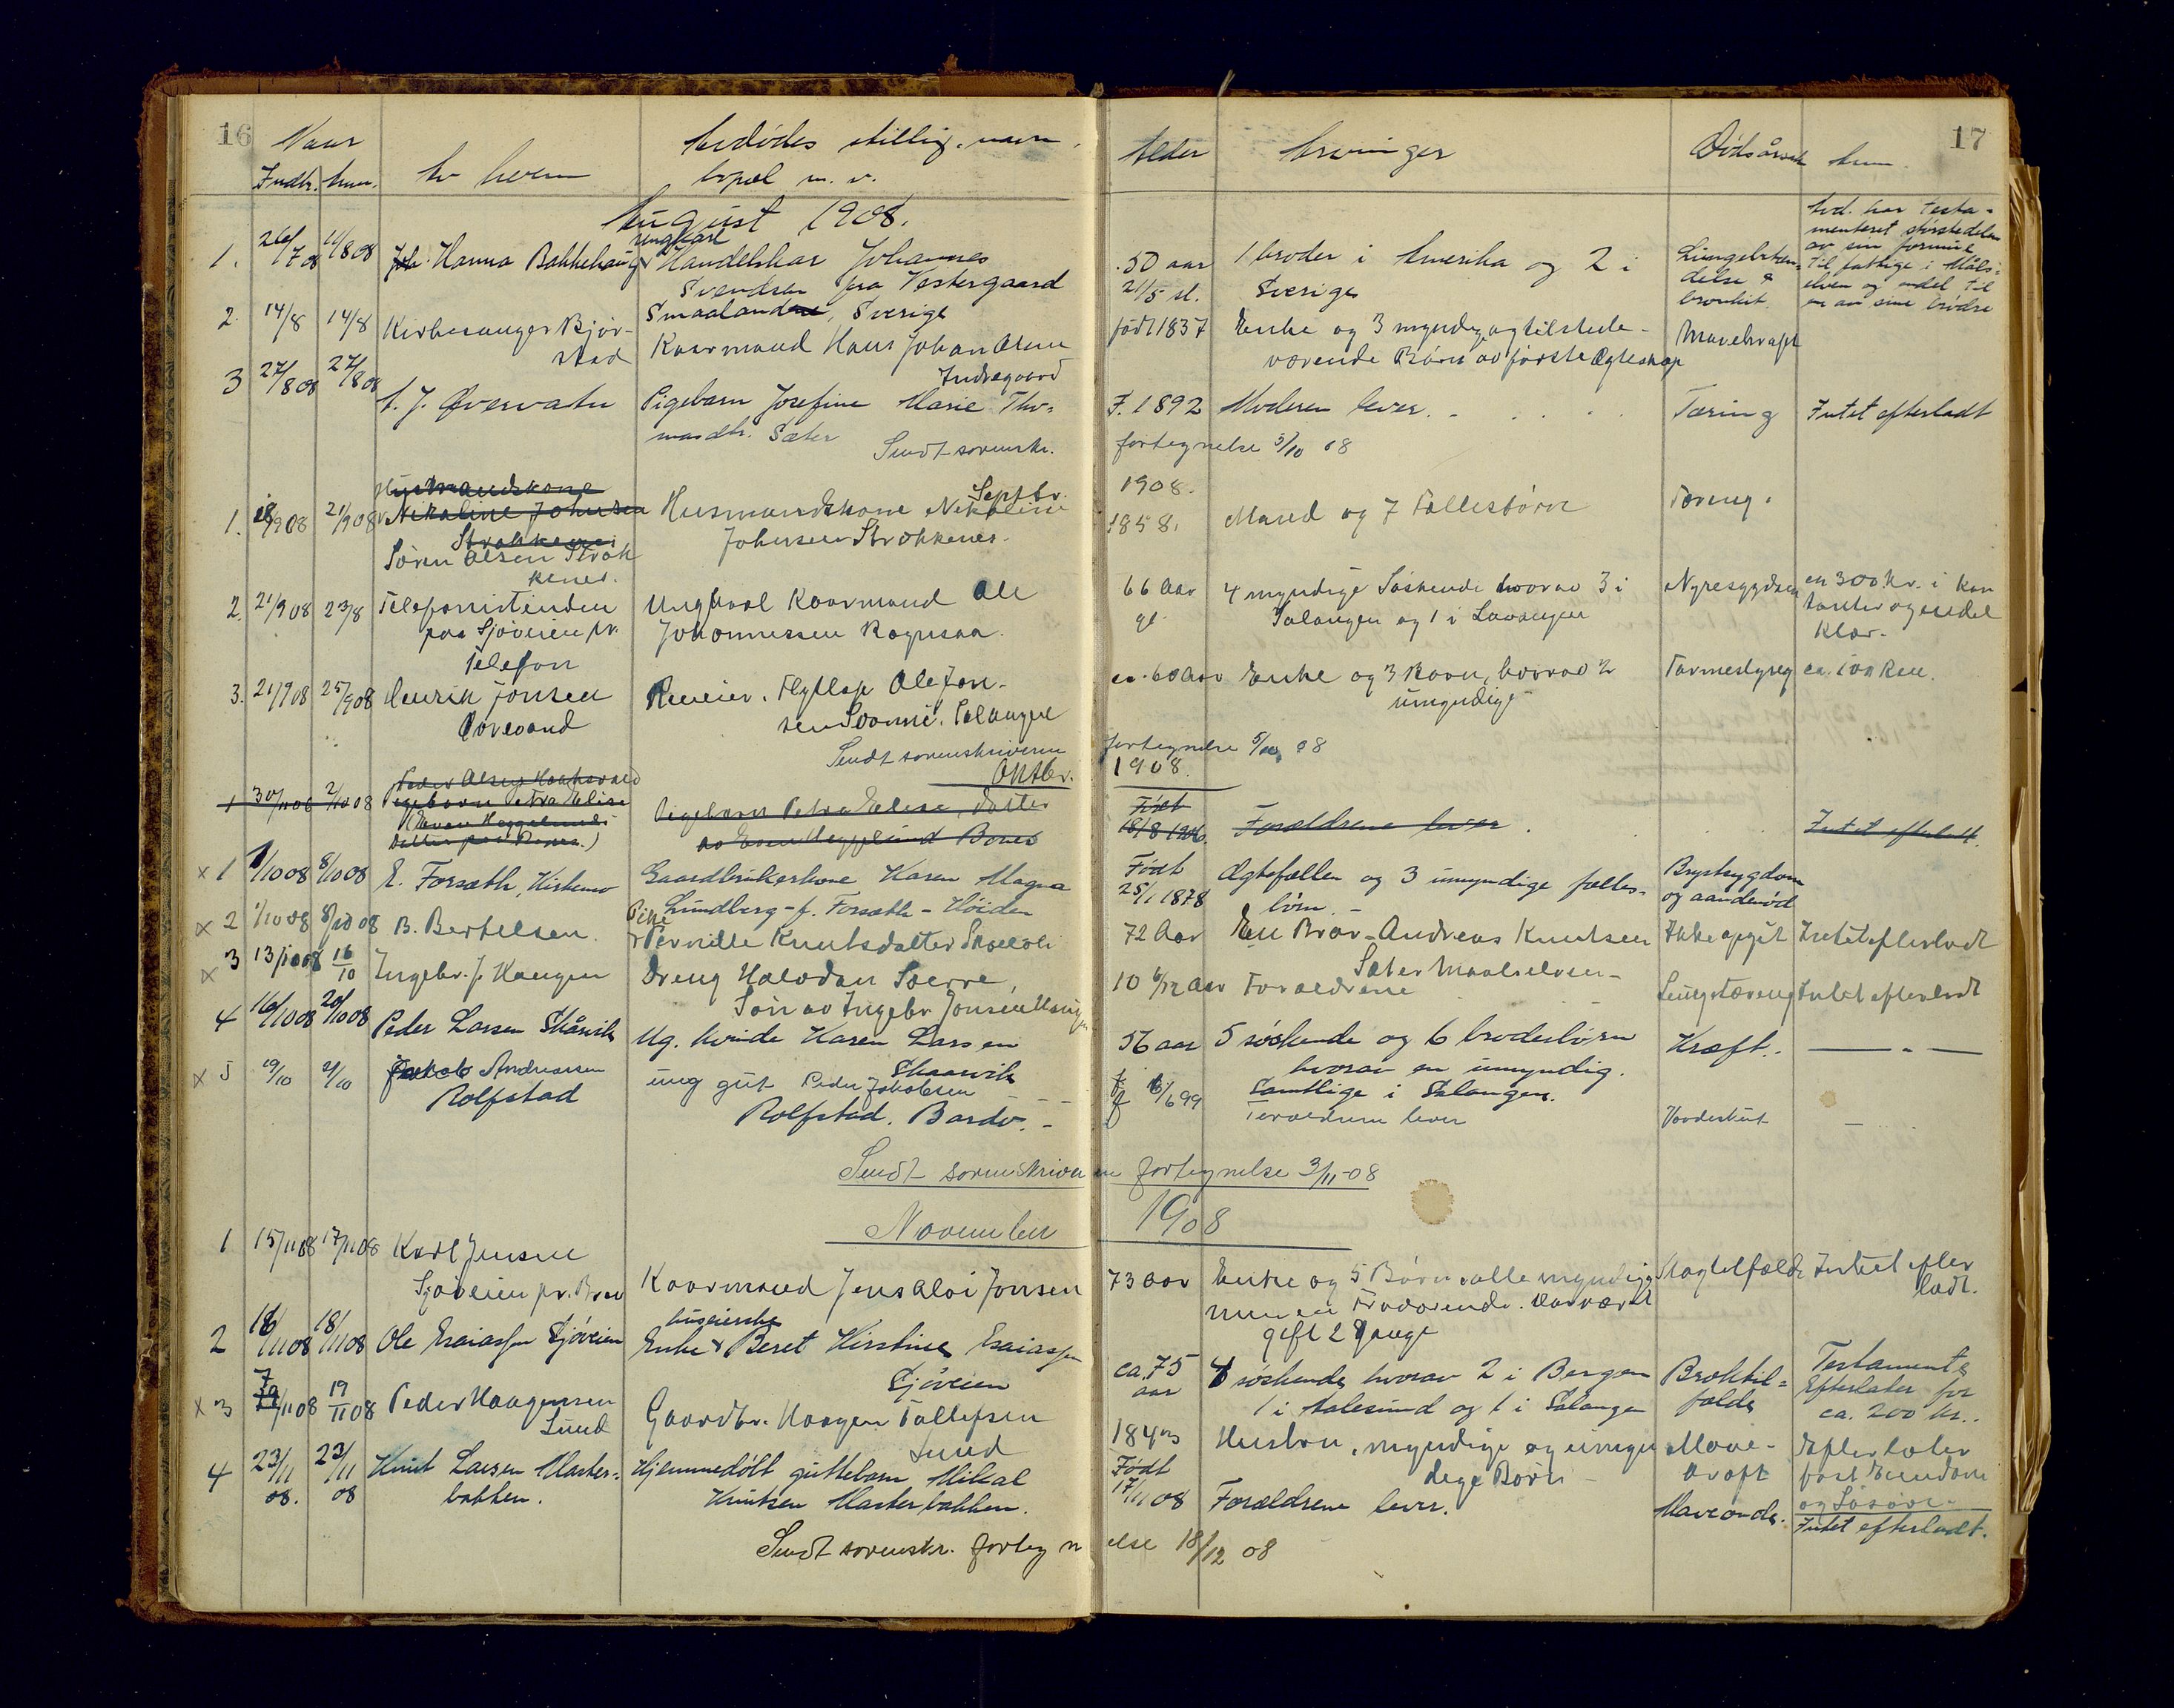 16
Naar
Indb. Anm.
Av hvem
Avdødes stilling, navn,
bopæl m. v.
August 1908.
1. 26/7 08 11/8 08 Joh. Hanna Bakkehaug
ungkarl
Handelskar Johannes
Svendsen fra Vestergaard
Smaaland, Sverige
2. 14/8 14/8 Kirkesanger Bjør-
stad
Kaarmand Hans Johan Olsen
Indregaard
3 27/8 08 27/8 08 A. J. Øvervatn
Pigebarn Josefine Marie Tho-
masdtr. Sæter
Sendt sorenskr.
Septbr.
1. 18/9 08 21/9 08 Husmandskone
Nikoline Johnsen
Strokkenes
Søren Olsen Strok
kenes.
Husmandskone Nikoline
Johnsen Strokkenes.
2. 21/9 08 23/8 Telefonistinden
paa Sjøveien pr.
Telefon
Ungkarl Kaarmand Ole
Johannessen Ragnsaa.
3. 21/9 08 25/9 08 Henrik Jonsen
Øvrevand
Reneier, Flytlap Ole Jon-
sen Svonni. Salangen
Sendt sorenskriveren
Oktbr.
1 30/11 06 2/10 08 Peder Olsen
Pigebarn Petra Elise
(Even Heggelunds
datter paa Bones.)
Pigebarn Petra Elise, datter
av Even Heggelund Bones
x 1 1/10 08 8/10 08 E. Forsæth, Kirkemo
Gaardbrukerkone Karen Magna
Lundberg - f. Forsæth - Høiden
x 2 1/10 08 8/10 08 B. Bertelsen.
Pike
Pernille Knutsdatter Skoelvli
x 3 13/10 08 16/10 Ingebr. J. Haugen
Dreng Halvdan Sverre,
Søn av Ingebr Jonsen Haugen
4 16/10 08 20/10 08 Peder Larsen Skårvik
Ug. kvinde Karen Larsen
Skaarvik
x 5 19/10 21/10 Jakob Andreassen
Rolfstad
ung gut Peder Jakobsen
Rolfstad. Bardo. -
Sendt sorenskriver
November
1 15/11 08 17/11 08 Karl Jensen
Sjøveien pr. Brev
Kaarmand Jens Aloi Jonsen
2 16/11 08 18/11 08 Ole Esaiassen Sjøveien
huseierske
Enke Beret Kirstine Esaiassen
Sjøveien
x 3 7/11 08 19/11 08 Peder Haagensen
Lund
Gaardbr. Haagen Tollefsen
Lund
4 23/11 08. 23/11 08 Knut Larsen Marker-
bakken.
Hjemmedøbt guttebarn Mikal
Knutsen Markerbakken.
Sendt sorenskr. forteg n
17
Alder
Arvinger
Dødsårsak
Anm.
50 aar
21/5 sl.
1 broder i Amerika og 2 i
Sverige
Lungebetæn-
delse &
bronkit.
Avd. har testa-
menteret størstedelen
av sin formue
til fattige i Måls-
elven og endel til
en av sine brødre
født 1837
Enke og 3 myndige og tilstede-
værende Børn av første Ægteskap
Mavekræft
F. 1892 Moderen lever. - . . .
Tæring
Intet efterladt
fortegnelse 5/10 08
1908.
1858. Mand og 7 Fællesbørn
Tæring.
66 Aar
gl.
4 myndige Søskende hvorav 3 i
Salangen og 1 i Lavangen
Nyresygdom
en 300 kr. i kon
tanter og endel
Klær.
ca. 60 Aar Enke og 3 Børn, hvorav 2
umyndige
Tarmeslyng
ca. 100 Ren.
fortegnelse 5/10 08
1908.
Født
18/8 1906. Forældrene lever.
Intet efterladt.
Født
25/1 1878
Ægtefællen og 3 umyndige fælles-
børn. -
Brystsygdom
og aandenød
72 Aar En Bror - Andreas Knutsen
Sæter Maalselven -
Ikke opgit
Intet efterladt
10 6/12 Aar Forældrene
Lungetæring
Intet efterladt
56 aar 5 søskende og 6 broderbørn
hvorav en umyndig.
Samtlige i Salangen.
Kræft.
— " —
f. 16/6 99 Forældrene lever
—
en fortegnelse 3/11-08
1908
73 Aar Enke og 5 Børn alle myndige
men en Fraværende. Har været
gift 2 Gange
Slagtilfælde
Intet efter
ladt.
ca. 75
aar
4 søskende, hvorav 2 i Bergen
1 i Aalesund og 1 i Salangen
Broktil-
fælde
Testamente
Efterlater for
ca. 200 kr..
184
Hustru, myndige og umyn
dige Børn -
Mave-
kræft
Efterlater
fast Eiendom
og Løsøre.
Født
17/11 08 Forældrene lever.
Maveonde.
Intet efterladt.
else 18/12 08